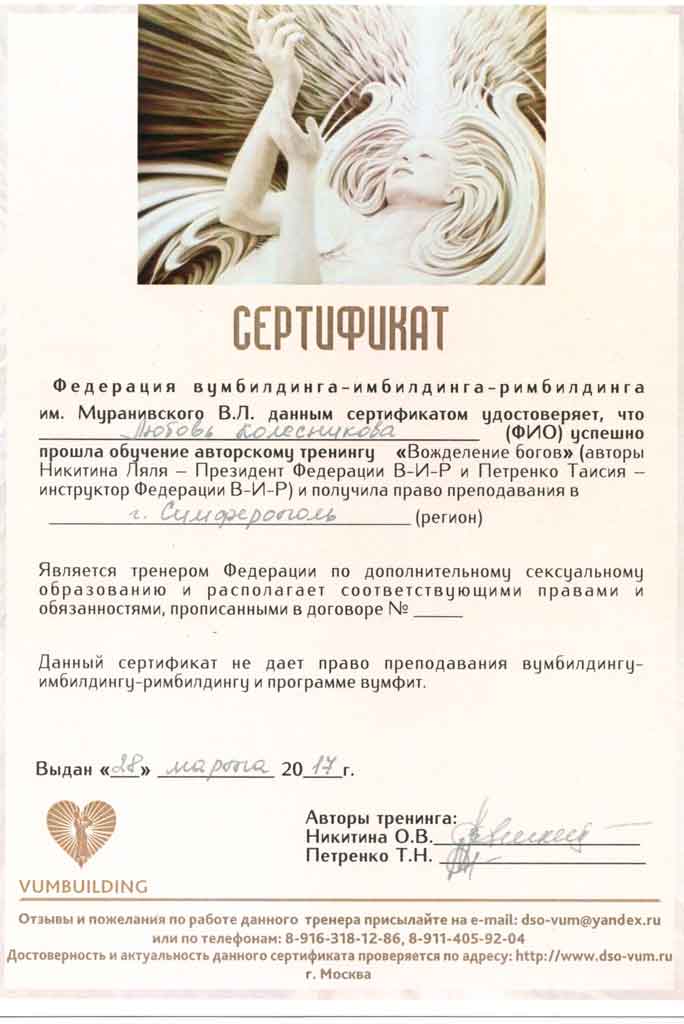 СЕРТИФИКАТ
Федерация вумбилдинга-имбилдинга-римбилдинга
им. Муранивского В.Л. данным сертификатом удостоверяет, что
Любовь Колесникова (ФИО) успешно
прошла обучение авторскому тренингу «Вожделение богов» (авторы
Никитина Ляля – Президент Федерации В-И-Р и Петренко Таисия –
инструктор Федерации В-И-Р) и получила право преподавания в
г. Симферополь (регион)
Является тренером Федерации по дополнительному сексуальному
образованию и располагает соответствующими правами и
обязанностями, прописанными в договоре № _____
Данный сертификат не дает право преподавания вумбилдингу-
имбилдингу-римбилдингу и программе вумфит.
Выдан «28» марта 2017г.
Авторы тренинга:
Никитина О.В.
Петренко Т.Н.
VUMBUILDING
Отзывы и пожелания по работе данного тренера присылайте на e-mail: dso-vum@yandex.ru
или по телефонам: 8-916-318-12-86, 8-911-405-92-04
Достоверность и актуальность данного сертификата проверяется по адресу: http://www.dso-vum.ru
г. Москва